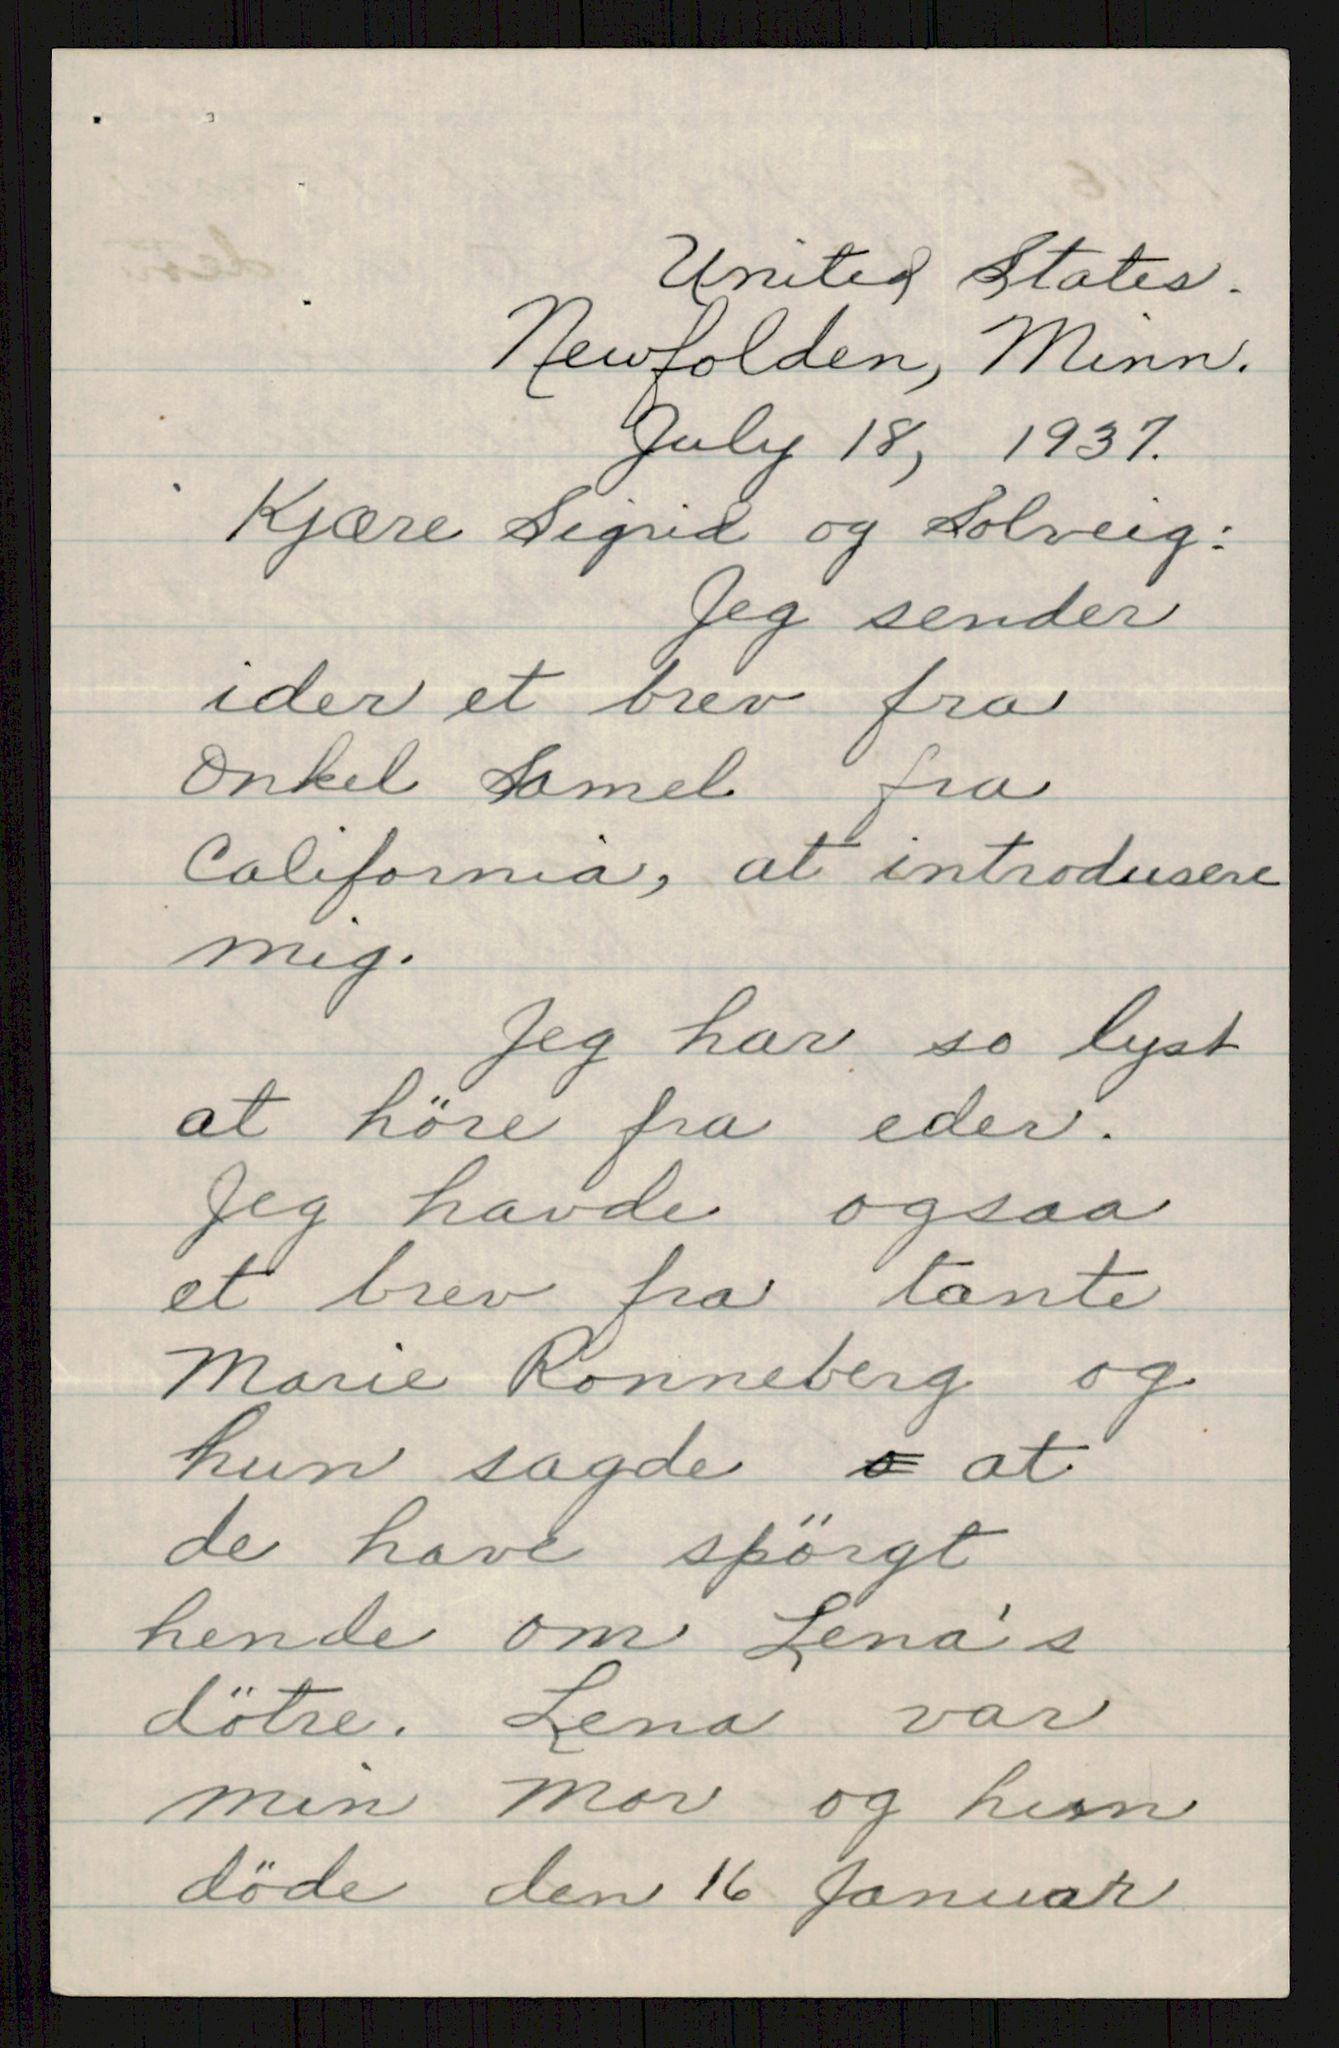 United States.
Newfolden, Minn.
July 18, 1937.
Kjære Sigrid og Solveig:
Jeg sender
ider et brev fra
Onkel Samel fra
California, at introdusere
mig.
Jeg har so lyst
at höre fra eder.
Jeg havde ogsaa
et brev fra tante
Marie Ronneberg og
hun sagde at
de have spörgt
hende om Lena's
dötre. Lena var
min Mor og hun
döde den 16 Januar